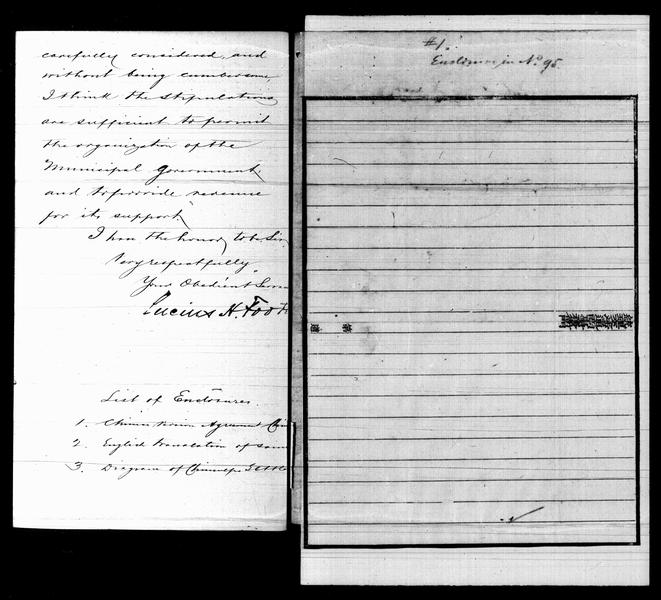 carefully considered, and
without being cumbersome,
I think the stipulations
are sufficient to permit
the organization of the
Municipal Government,
and to provide revenue
for its support.
I have the honor to be Sir
Very respectfully
Your Obedient
Lucius H. Foot
List of Enclosures.
1. Agreement
2. English translation of same
3. Diagram of
#1.
Enclosure in No 95.